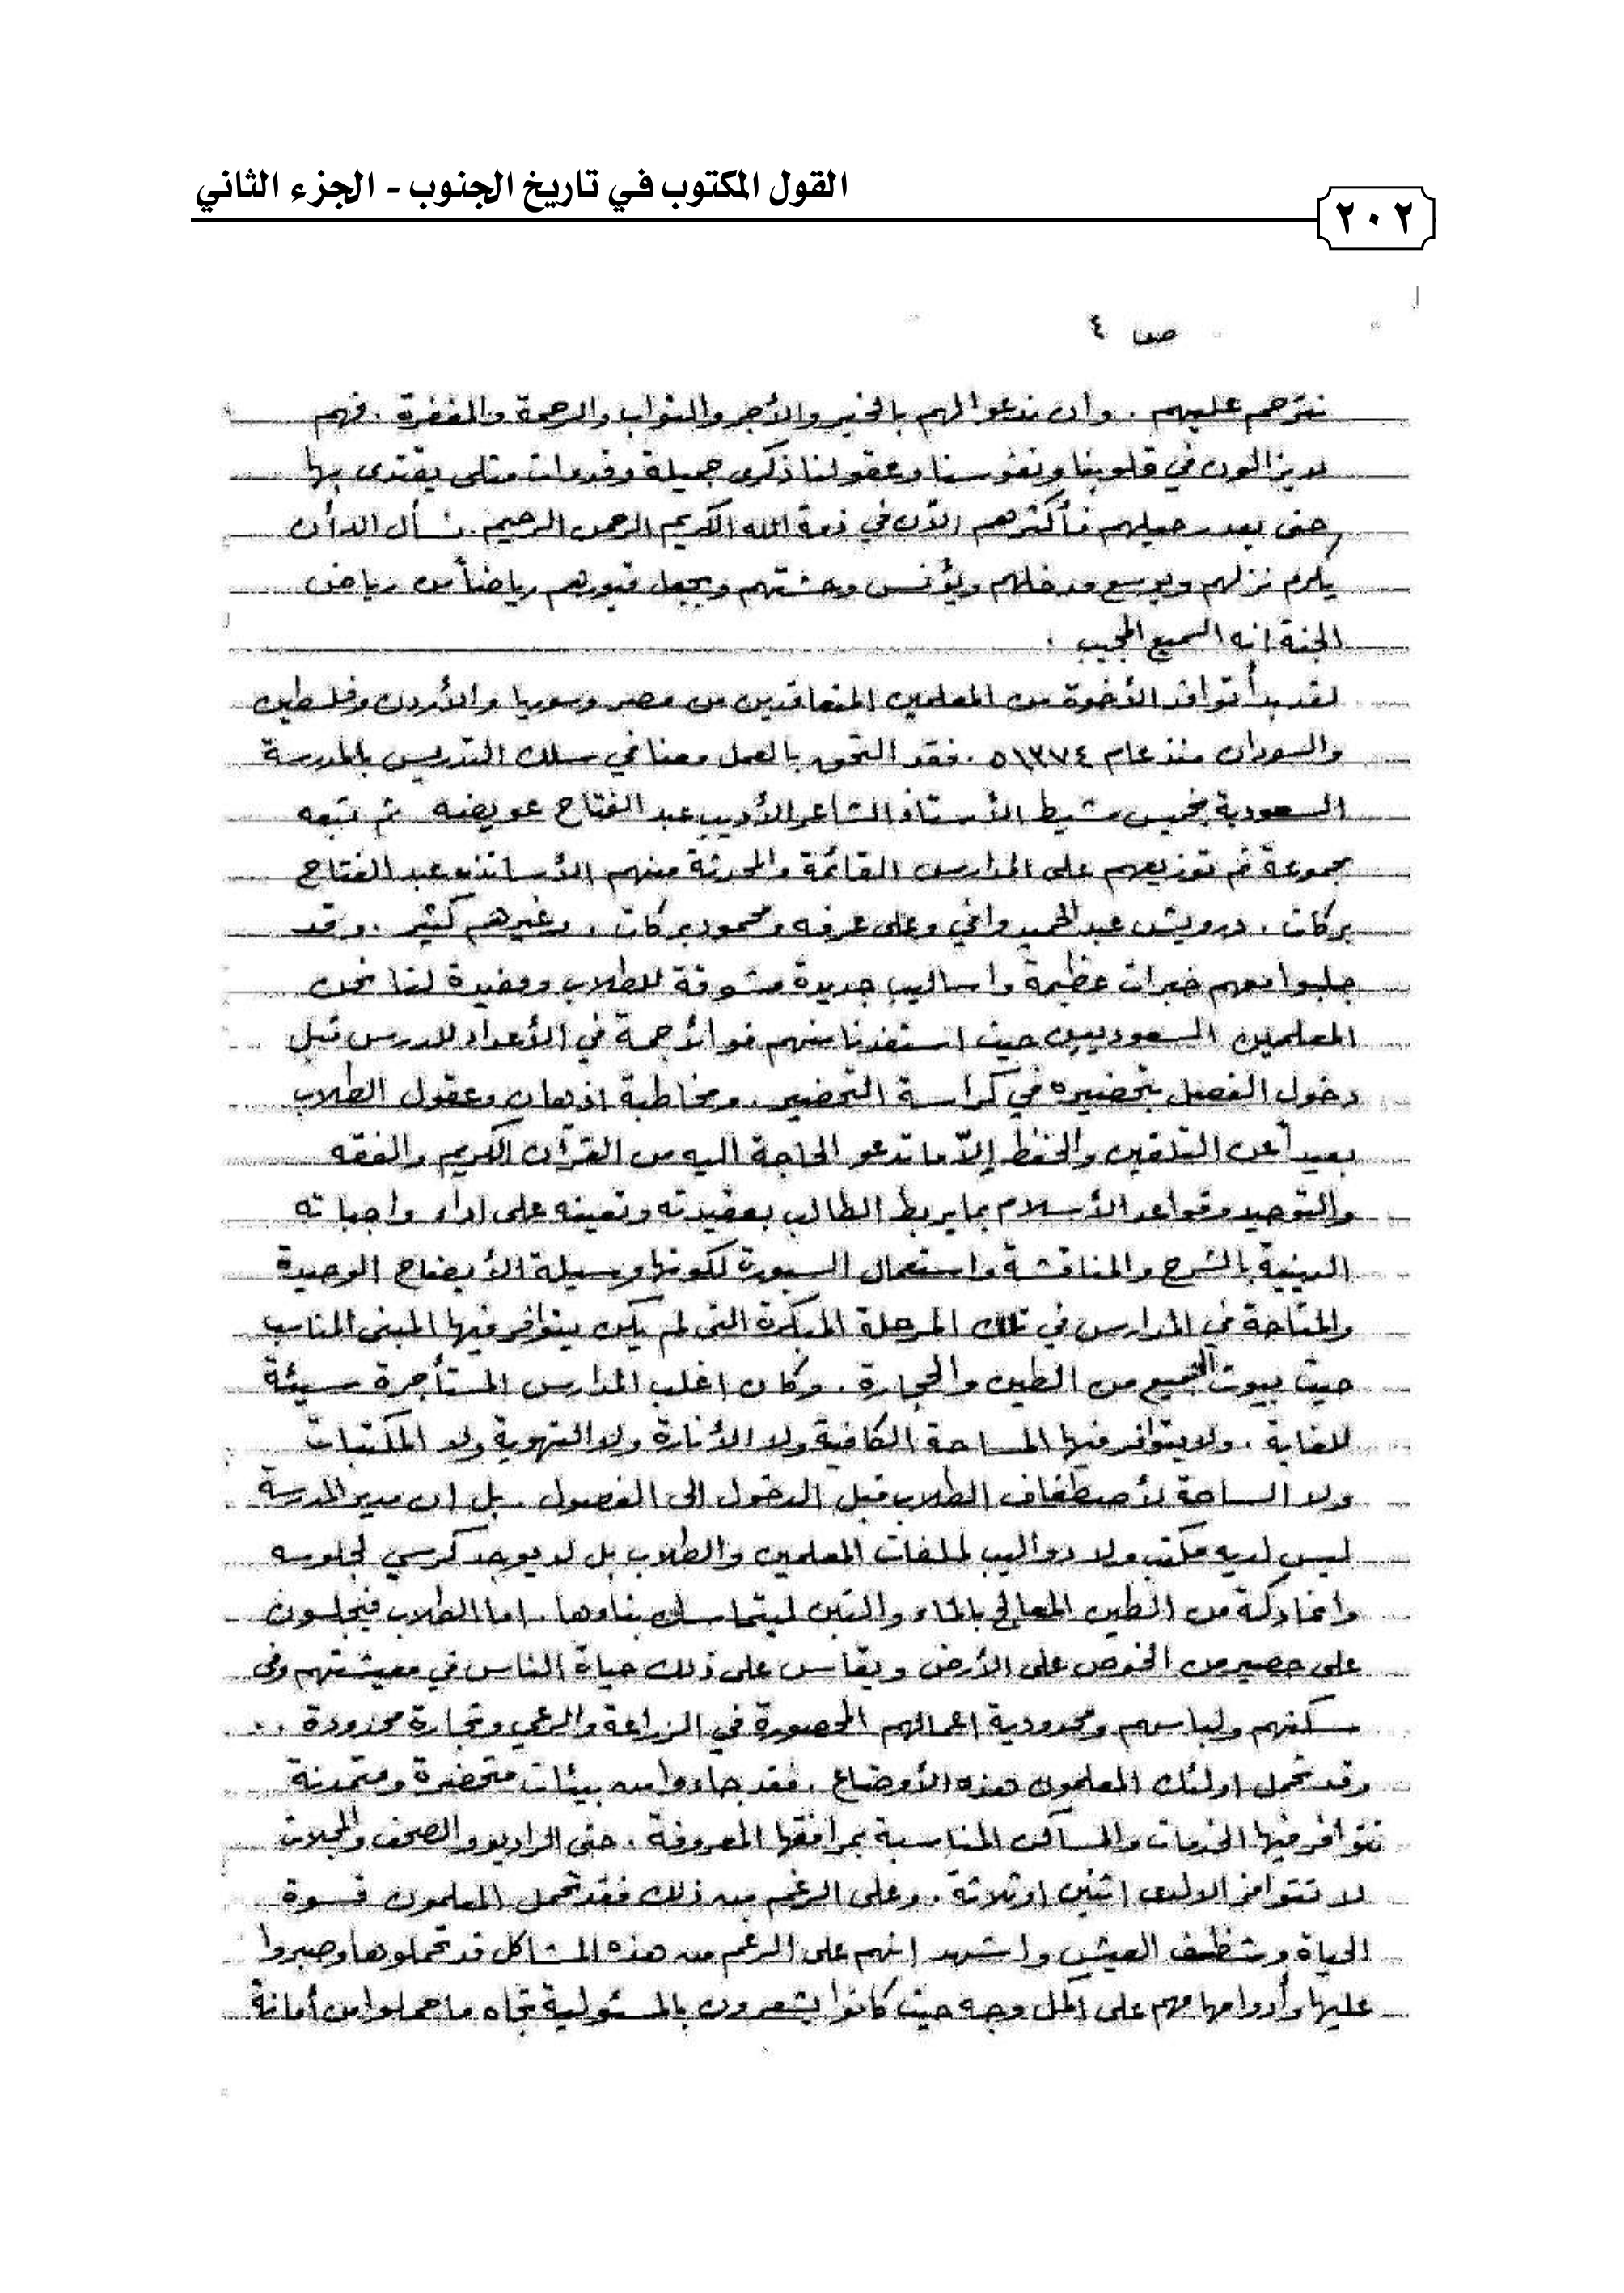 القول المكتوب في تاريخ الجنوب - الجزء الثاني
٢٠٢
ص ٤
نترحم عليهم . وأن ندعوا لهم بالخير والأجر والثواب والرحمة والمغفرة . فهم
لا يزالون في قلوبنا ونفوسنا وعقولنا ذكرى جميلة وقدوات مثلى يقتدى بها
حتى بعد رحيلهم فأكثرهم الآن في ذمة الله الكريم الرحمن الرحيم . نسأل الله أن
يكرم نزلهم ويوسع مدخلهم ويؤنس وحشتهم ويجعل قبورهم رياضاً من رياض
الجنة انه السميع المجيب .
لقد بدأ توافد الأخوة من المعلمين المتعاقدين من مصر وسوريا والأردن وفلسطين
والسودان منذ عام ١٣٧٤ه . فقد التحق بالعمل معنا في سلك التدريس بالمدرسة
السعودية بخميس مشيط الأستاذ الشاعر الأديب عبد الفتاح عويضه ثم تبعه
مجموعة تم توزيعهم على المدارس القائمة والمحدثة منهم الأساتذه عبد الفتاح
بركات . درويش عبد الحميد وافي وعلى عرفه ومحمود بركات . وغيرهم كثير . وقد
جلبوا معهم خبرات عظيمة واساليب جديدة مشوقة للطلاب ومفيدة لنا نحن
المعلمين السعوديين حيث استفدنا منهم فوائد جمة في الأعداد للدرس قبل
دخول الفصل بتحضيره في كراسة التحضير . ومخاطبة اذهان وعقول الطلاب
بعيداً عن التلقين والحفظ إلّا ما تدعو الحاجة اليه من القرآن الكريم والفقه
والتوحيد وقواعد الأسلام بما يربط الطالب بعقيدته وتعينه على اداء واجباته
الدينية بالشرح والمناقشة واستعمال السبورة لكونها وسيلة الأيضاح الوحيدة
والمتاحة في المدارس في تلك المرحلة المبكرة التى لم يكن يتوافر فيها المبنى المناسب
حيث بيوت الجميع من الطين والحجارة . وكان اغلب المدارس المستأجرة سيئة
للغاية . ولا يتوافر فيها المساحة الكافية ولا الأنارة ولا التهوية ولا المكتبات
ولا الساحة لأصطفاف الطلاب قبل الدخول الى الفصول . بل ان مدير المدرسة
ليس لديه مكتب ولا دواليب لملفات المعلمين والطلاب بل لا يوجد كرسي لجلوسه
وانما دكة من الطين المعالج بالماء والتبن ليتماسك بناوها . اما الطلاب فيجلسون
على حصير من الخوص على الأرض ويقاس على ذلك حياة الناس في معيشتهم وفى
سكنهم ولباسهم ومحدودية اعمالهم المحصورة في الزراعة والرعي وتجارة محدودة ..
وقد تحمل اولئك المعلمون هذه الأوضاع . فقد جاءوا من بيئات متحضرة ومتمدنة
تتوافر فيها الخدمات والمساكن المناسبة بمرافقها المعروفة . حتى الراديو والصحف والمجلات
لا تتوافر الا لدى اثنين او ثلاثة . وعلى الرغم من ذلك فقد تحمل المعلمون قسوة
الحياة وشظف العيش واشهد إنهم على الرغم من هذه المشاكل قد تحملوها وصبروا
عليها وأدوا مهامهم على اكمل وجه حيث كانوا يشعرون بالمسئولية تجاه ما حملوا من أمانة